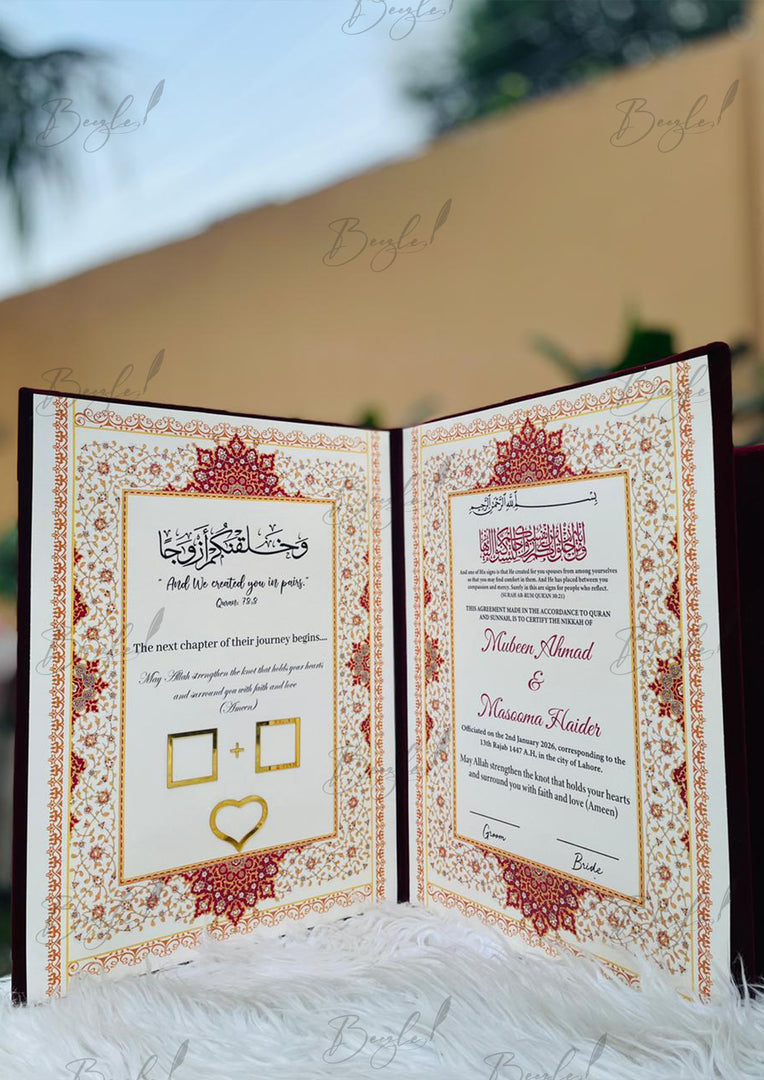 وَخَلَقْنَٰكُمْ أَزْوَٰجًا
" And We created you in pairs."
Quran: 78:8
The next chapter of their journey begins....
May Allah strengthen the knot that holds your hearts
and surround you with faith and love
(Ameen)
+
بِسْمِ اللهِ الرَّحْمٰنِ الرَّحِيْمِ
And one of His signs is that He created for you spouses from among yourselves
so that you may find comfort in them. And He has placed between you
compassion and mercy. Surely in this are signs for people who reflect.
(SURAH AR-RUM QURAN 30:21)
THIS AGREEMENT MADE IN THE ACCORDANCE TO QURAN
AND SUNNAH, IS TO CERTIFY THE NIKKAH OF
Mubeen Ahmad
&
Masooma Haider
Officiated on the 2nd January 2026, corresponding to the
13th Rajab 1447 A.H, in the city of Lahore.
May Allah strengthen the knot that holds your hearts
and surround you with faith and love (Ameen)
Groom
Bride
Beezle!